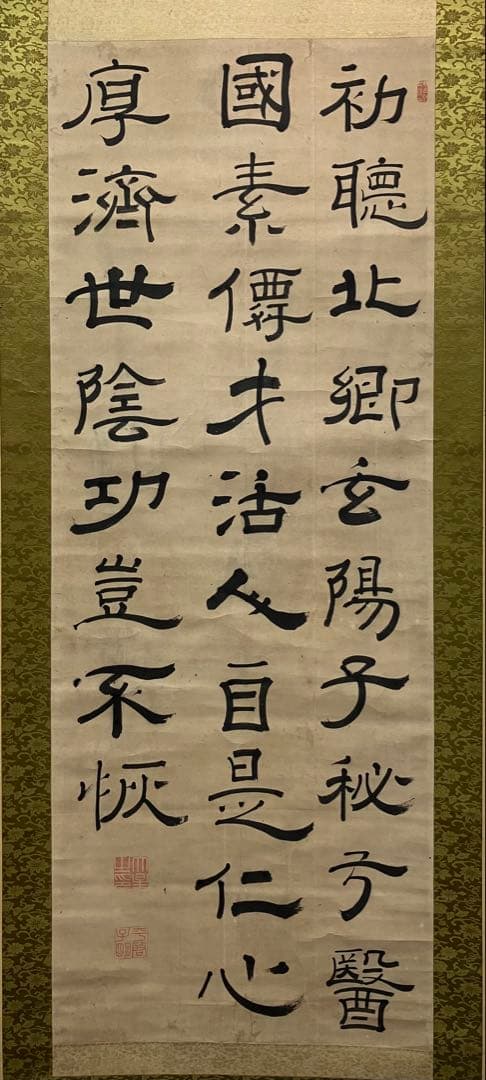 初聽北卿玄陽子秘方醫
國素僊才活人自是仁心
厚濟世陰功豈不恢